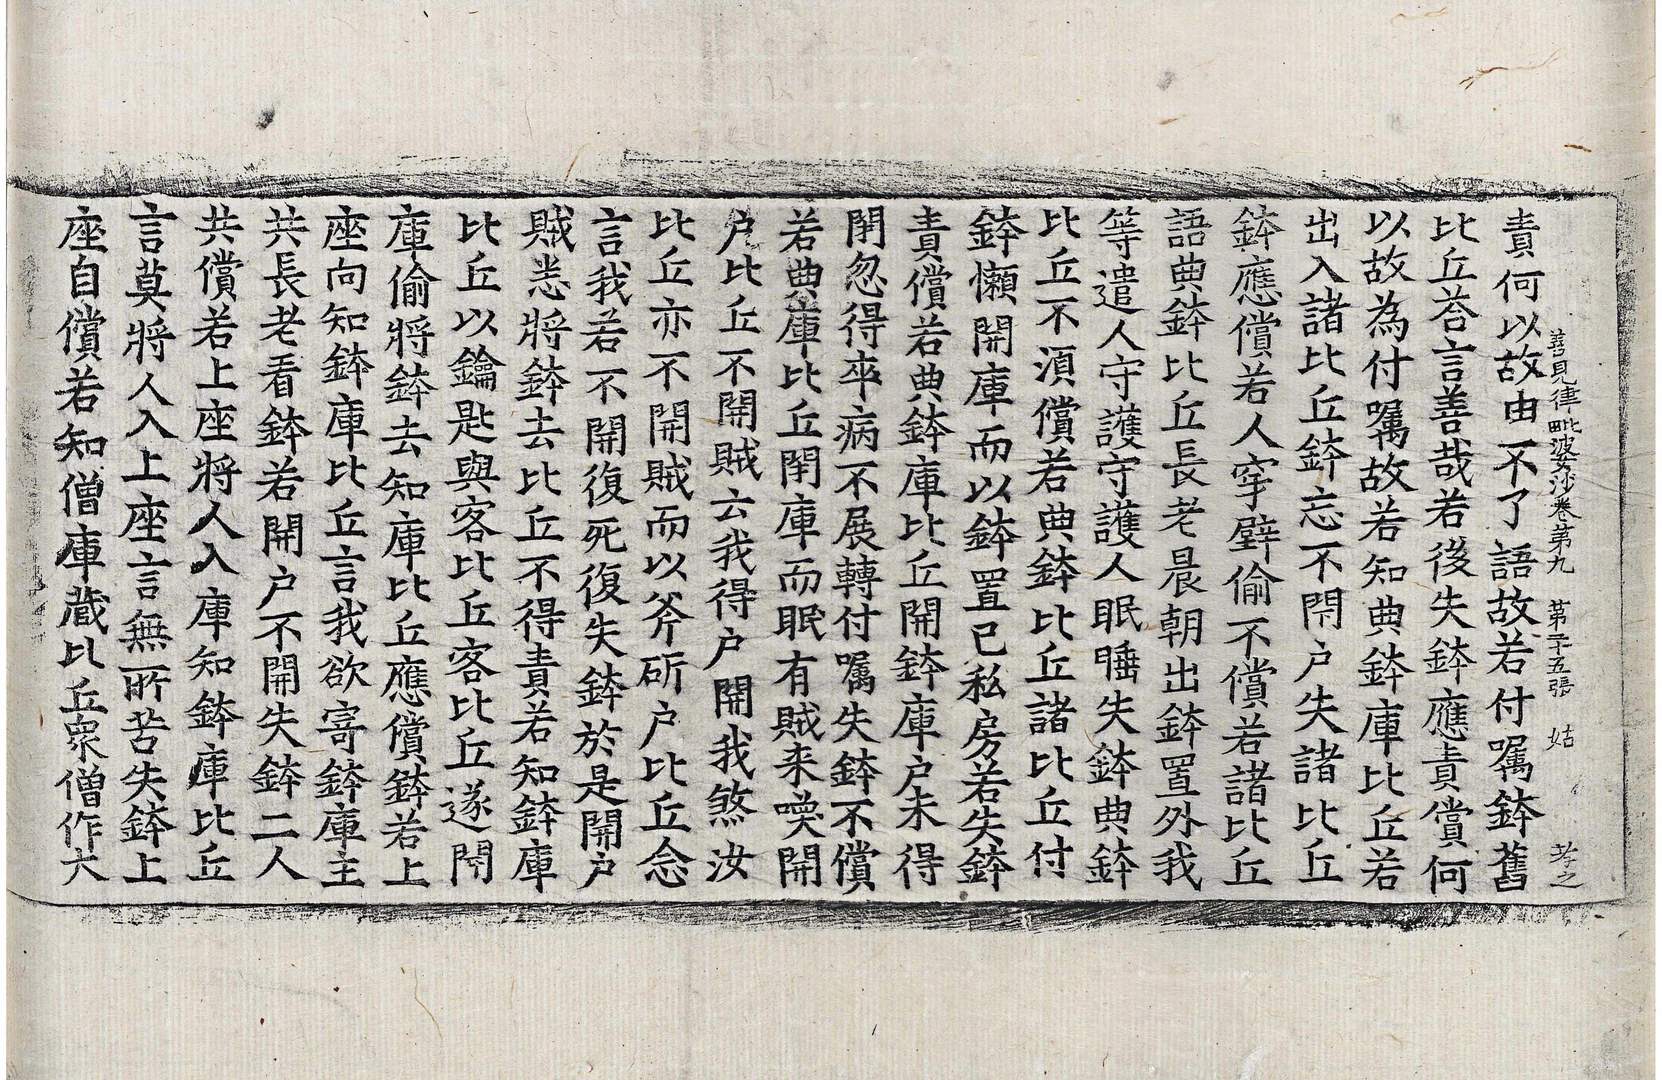 善見律毗婆沙卷第九 第二十五張 姑 孝之
責何以故由不了語故若付囑鉢舊
比丘荅言善哉若後失鉢應責償何
以故為付囑故若知典鉢庫比丘若
出入諸比丘鉢忘不閇户失諸比丘
鉢應償若人穿壁偷不償若諸比丘
語典鉢比丘長老晨朝出鉢置外我
等遣人守護守護人眠睡失鉢典鉢
比丘不湏償若典鉢比丘諸比丘付
鉢懶開庫而以鉢置已私房若失鉢
責償若典鉢庫比丘開鉢庫户未得
閇忽得卒病不展轉付囑失鉢不償
若典庫比丘閇庫而眠有賊来喚開
户比丘不開賊云我得户開我煞汝
比丘亦不開賊而以斧斫户比丘念
言我若不開復死復失鉢於是開户
賊恙將鉢去比丘不得責若知鉢庫
比丘以鑰匙與客比丘客比丘遂開
庫偷將鉢去知庫比丘應償鉢若上
座向知鉢庫比丘言我欲寄鉢庫主
共長老看鉢若開户不開失鉢二人
共償若上座將人入庫知鉢庫比丘
言莫將人入上座言無所苦失鉢上
座自償若知僧庫藏比丘眾僧作大